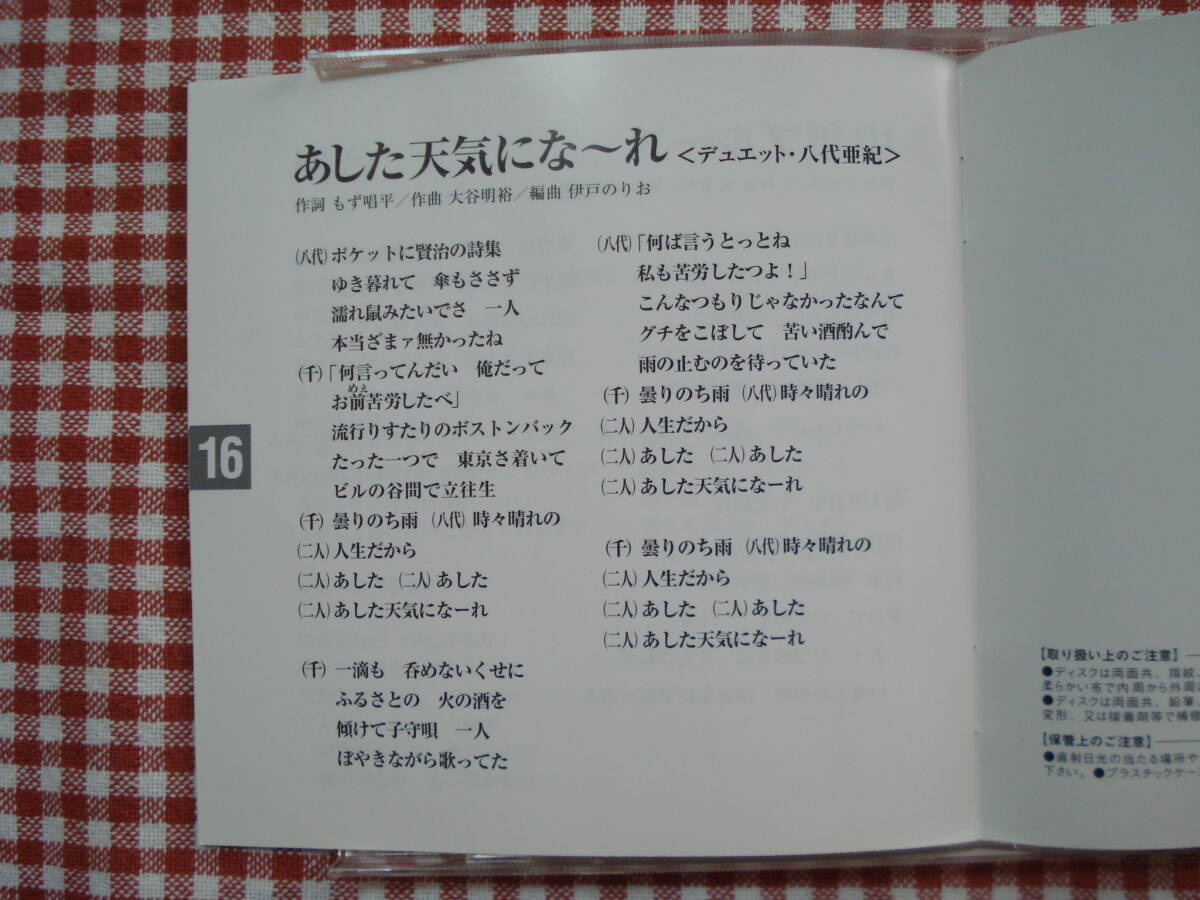 あした天気にな〜れ <デュエット・八代亜紀>
作詞 もず唱平／作曲 大谷明裕／編曲 伊戸のりお
16
(八代) ポケットに賢治の詩集
ゆき暮れて　傘もささず
濡れ鼠みたいでさ　一人
本当ざまァ無かったね
(千)「何言ってんだい　俺だって
めえ
お前苦労したべ」
流行りすたりのボストンバック
たった一つで　東京さ着いて
ビルの谷間で立往生
(千) 曇りのち雨 (八代) 時々晴れの
(二人) 人生だから
(二人) あした (二人) あした
(二人) あした天気になーれ
(千) 一滴も　呑めないくせに
ふるさとの　火の酒を
傾けて子守唄　一人
ぼやきながら歌ってた
(八代)「何ば言うとっとね
私も苦労したつよ！」
こんなつもりじゃなかったなんて
グチをこぼして　苦い酒酌んで
雨の止むのを待っていた
(千) 曇りのち雨 (八代) 時々晴れの
(二人) 人生だから
(二人) あした (二人) あした
(二人) あした天気になーれ
(千) 曇りのち雨 (八代) 時々晴れの
(二人) 人生だから
(二人) あした (二人) あした
(二人) あした天気になーれ
【取り扱い上のご注意】
●ディスクは両面共、指紋、
柔らかい布で内周から外周
●ディスクは両面共、鉛筆、
変形、又は接着剤等で補修
【保管上のご注意】
●直射日光の当たる場所や
下さい。●プラスチックケー